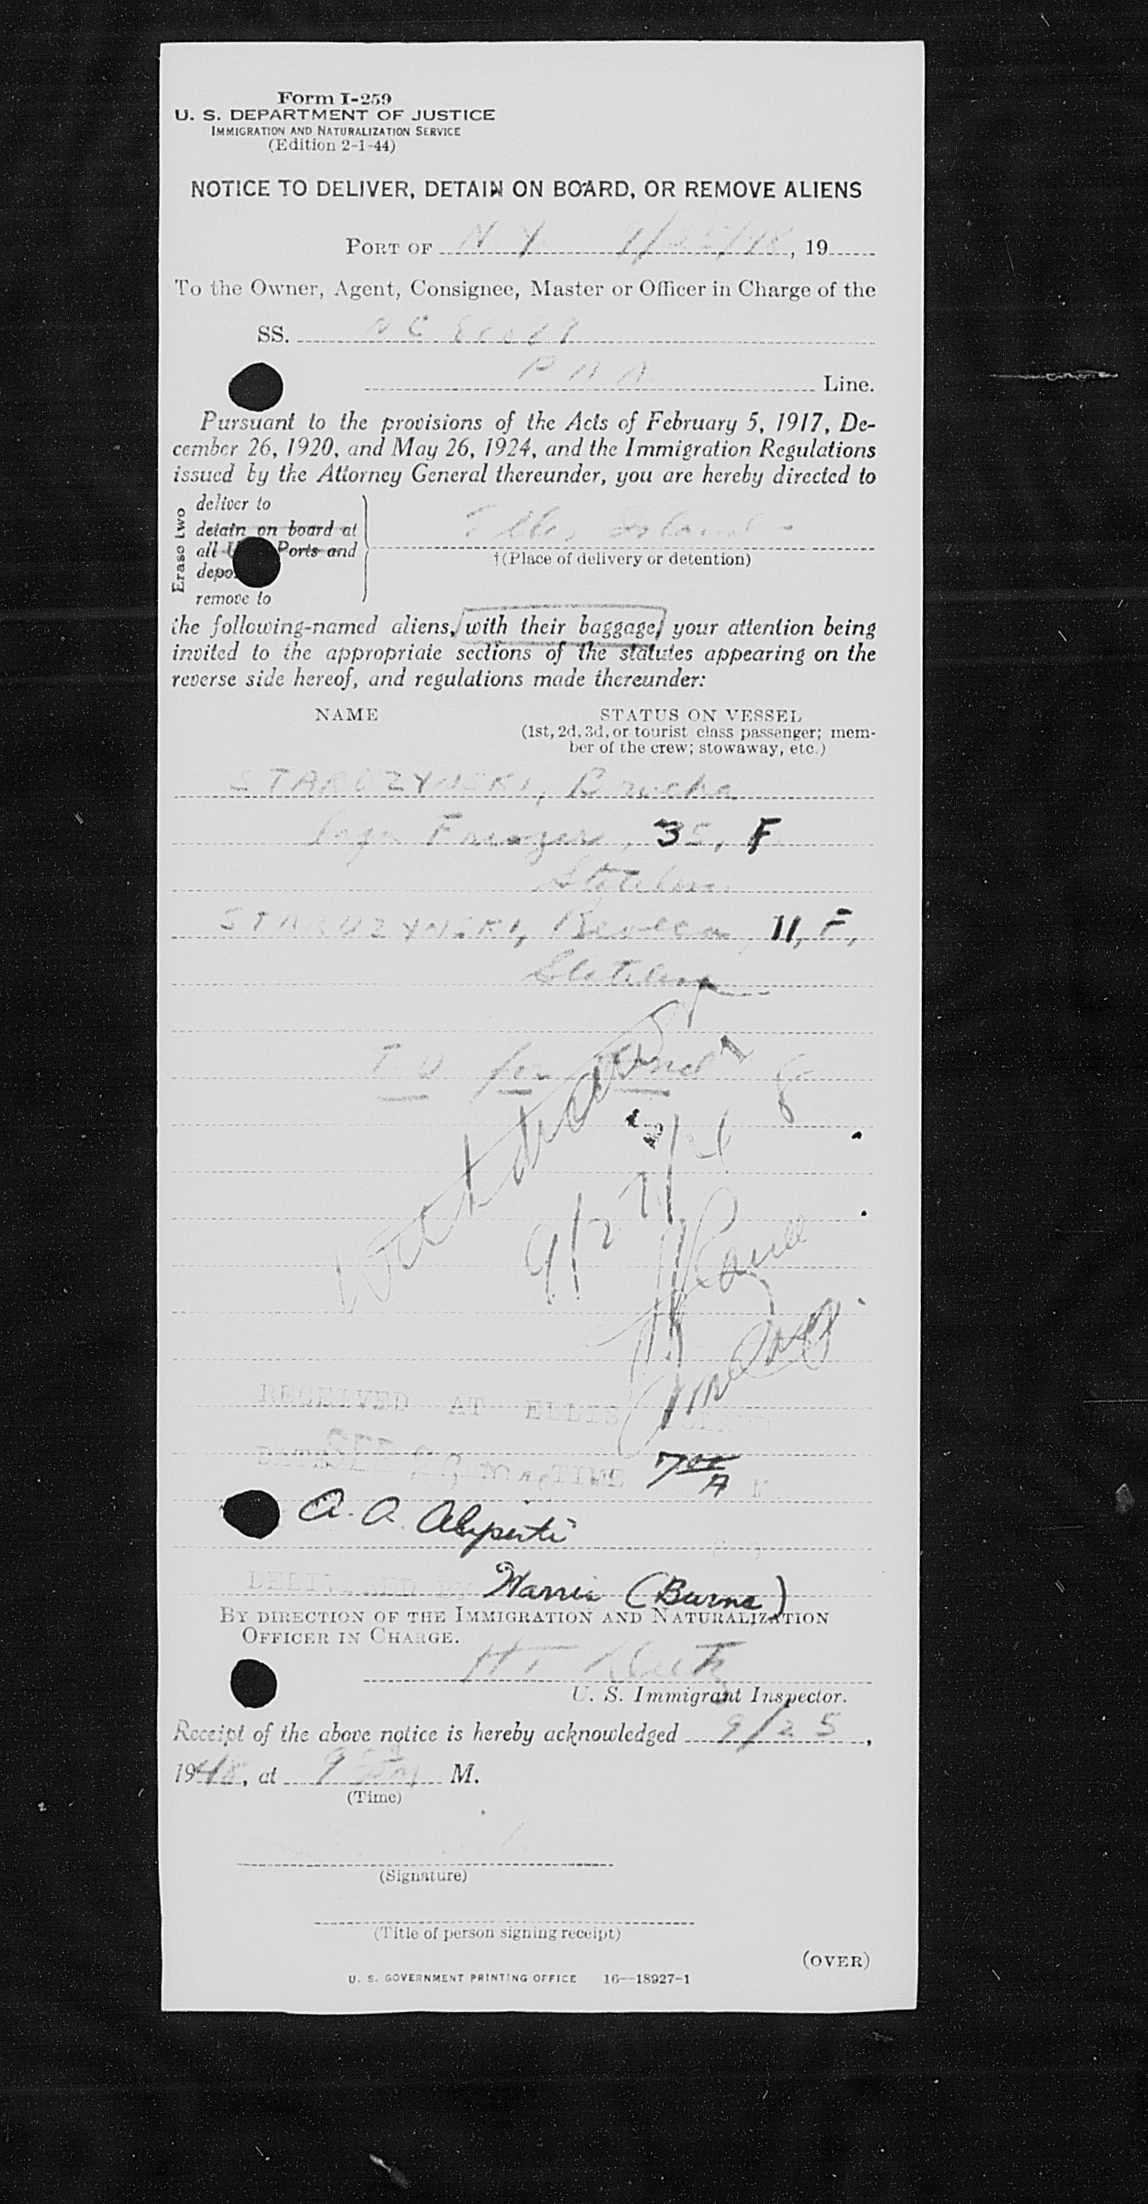 Form I-259
U. S. DEPARTMENT OF JUSTICE
IMMIGRATION AND NATURALIZATION SERVICE
(Edition 2-1-44)
NOTICE TO DELIVER, DETAIN ON BOARD, OR REMOVE ALIENS
PORT OF N Y 9/25/48, 19
To the Owner, Agent, Consignee, Master or Officer in Charge of the
SS. NC
P A A Line.
Pursuant to the provisions of the Acts of February 5, 1917, De-
cember 26, 1920, and May 26, 1924, and the Immigration Regulations
issued by the Attorney General thereunder, you are hereby directed to
Erase two
deliver to
detain on board at
all U Ports and
depo
remove to
Ellis Island
†(Place of delivery or detention)
the following-named aliens, with their baggage, your attention being
invited to the appropriate sections of the statutes appearing on the
reverse side hereof, and regulations made thereunder:
NAME STATUS ON VESSEL
(1st, 2d, 3d, or tourist class passenger; mem-
ber of the crew; stowaway, etc.)
STAROZYNSKI, Brucha
35, F
Stateless
STAROZYNSKI, Rebecca, 11, F,
Stateless
T D
withdrawn
9/27/48
RECEIVED AT ELLIS
DATE SEP TIME 7 00 A M
A. A. Aliperti
DELIVERED BY Harris (Burns)
BY DIRECTION OF THE IMMIGRATION AND NATURALIZATION
OFFICER IN CHARGE.
U. S. Immigrant Inspector.
Receipt of the above notice is hereby acknowledged 9/25,
1948, at 9 M.
(Time)
(Signature)
(Title of person signing receipt)
(OVER)
U. S. GOVERNMENT PRINTING OFFICE 16—18927-1